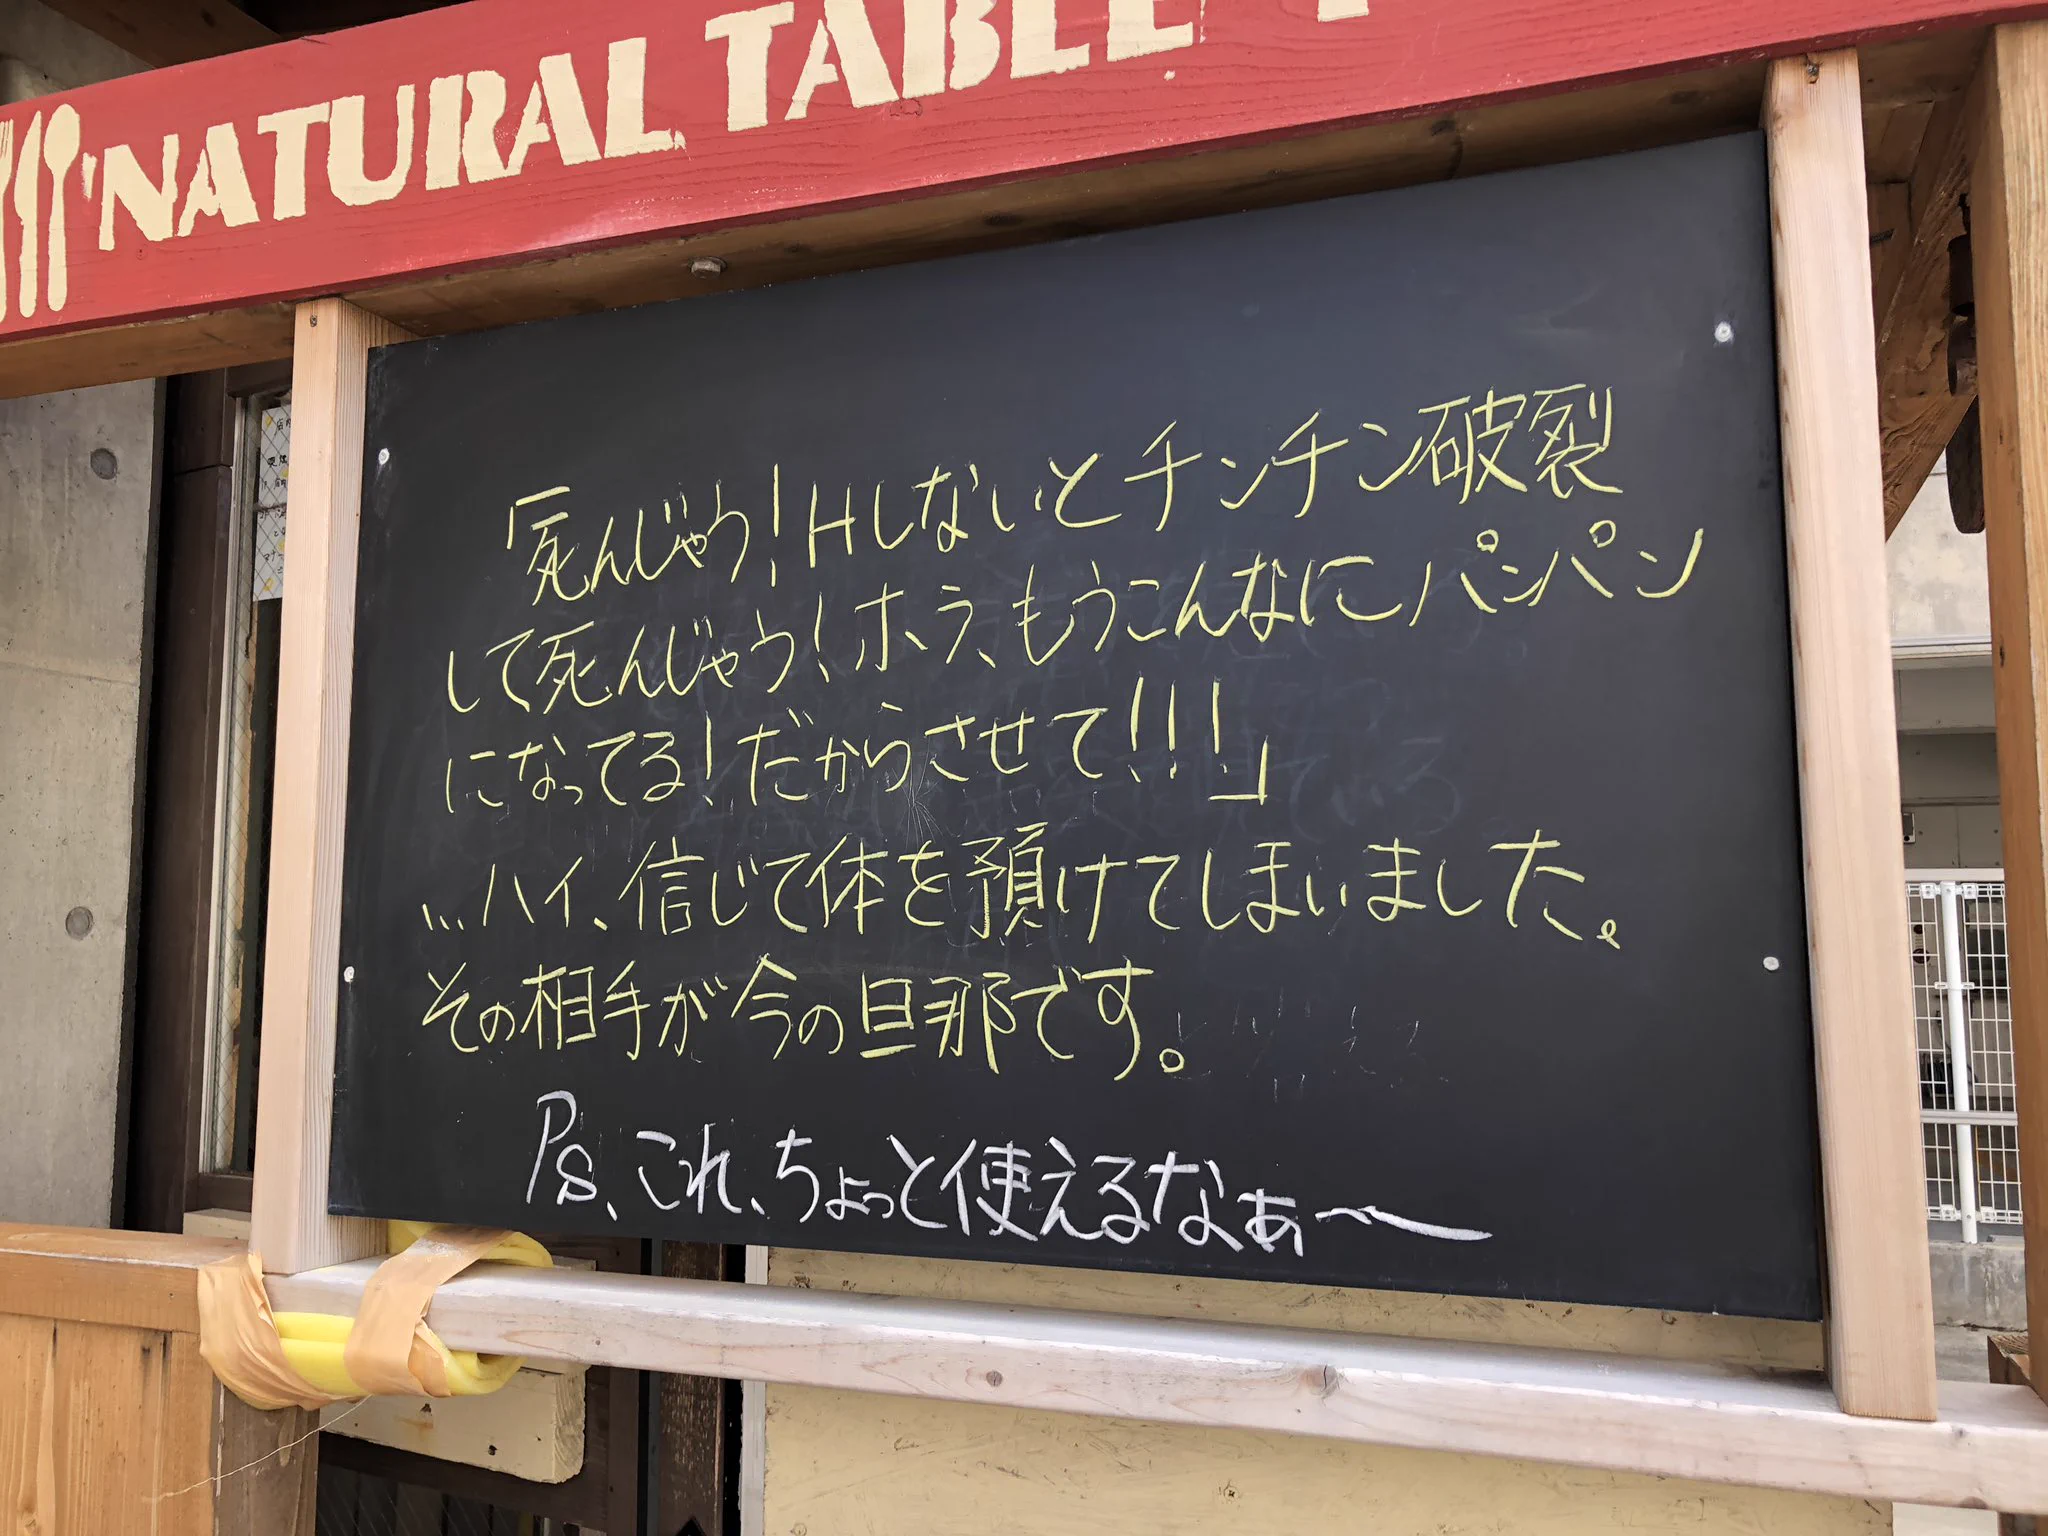 NATURAL TABLE
「死んじゃう!Hしないとチンチン破裂
して死んじゃう!ホラ、もうこんなにパンパン
になってる!だからさせて!!!」
…ハイ、信じて体を預けてしまいました。
その相手が今の旦那です。
Ps、これ、ちょっと使えるなぁ〜